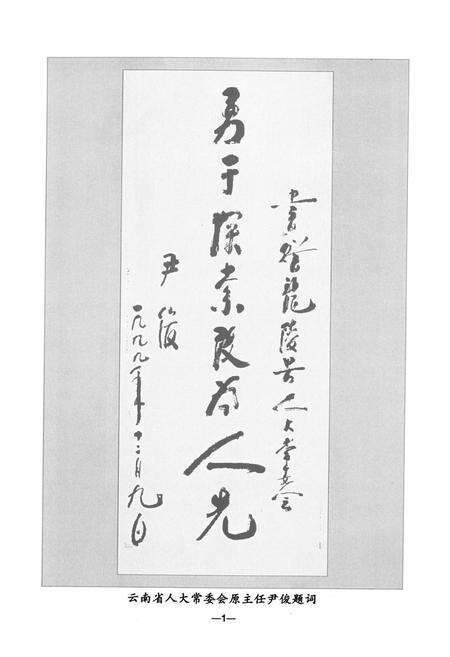 书赠龙陵县人大常委会
勇于探索敢为人先
尹俊
一九九九年十二月九日
云南省人大常委会原主任尹俊题词
—1—